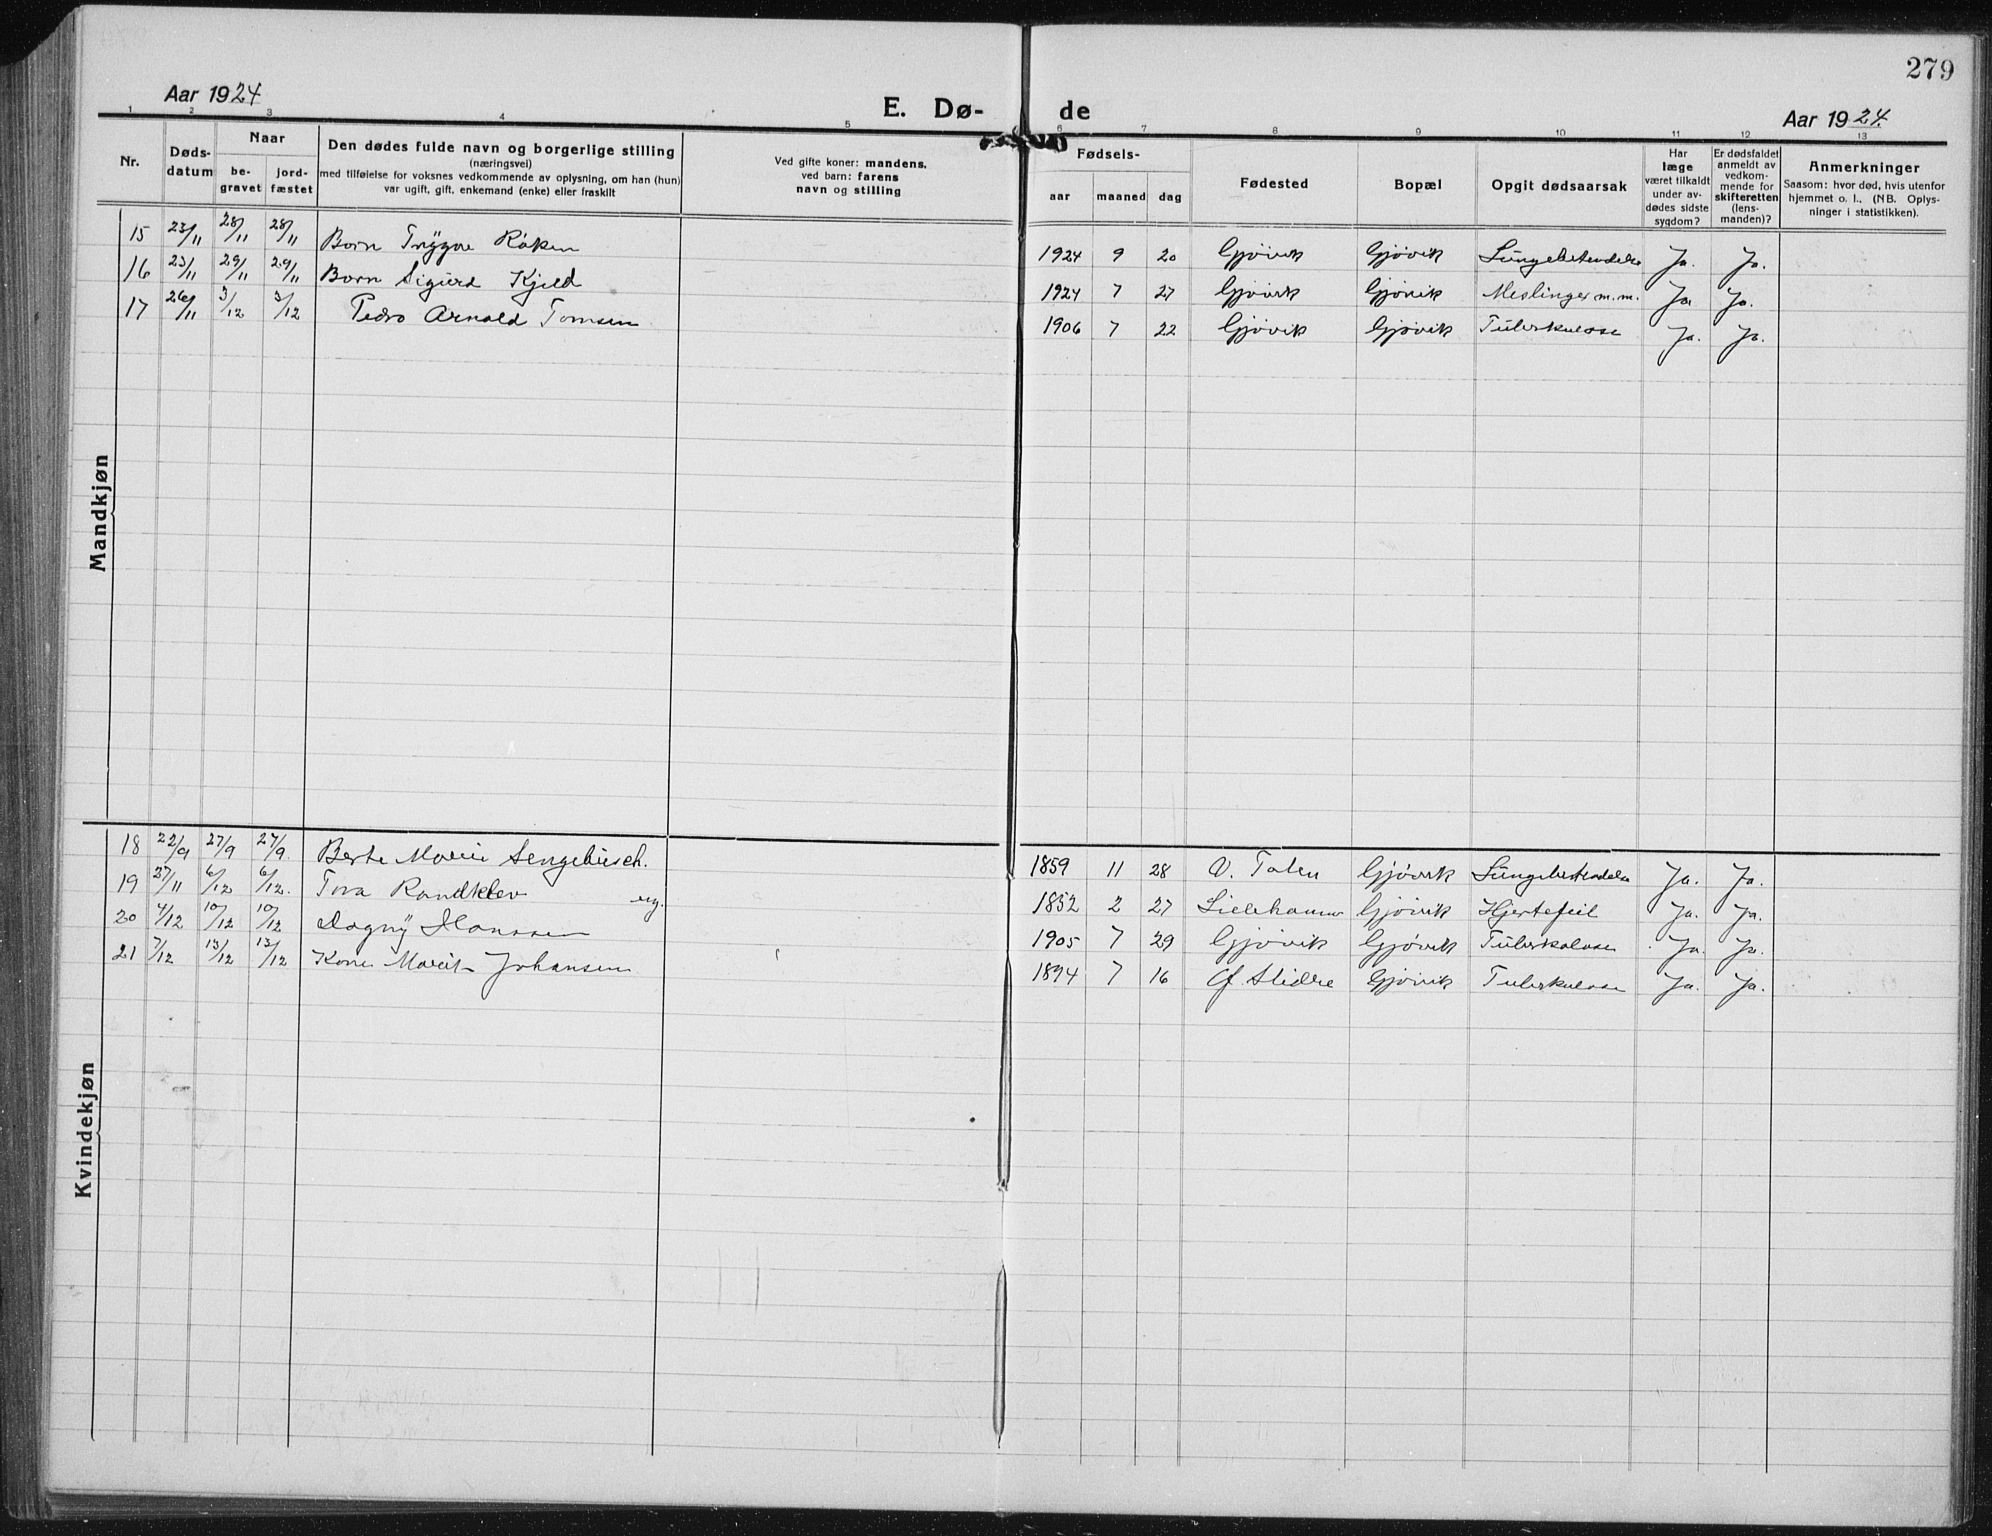 279
Aar 1924
E. Dø-
de
Aar 1924.
1 2 3 4 5 6 7 8 9 10 11 12 13
Nr.
Døds-
datum
Naar
be-
gravet
jord-
fæstet
Den dødes fulde navn og borgerlige stilling
(næringsvei)
med tilføielse for voksnes vedkommende av oplysning, om han (hun)
var ugift, gift, enkemand (enke) eller fraskilt
Ved gifte koner: mandens.
ved barn: farens
navn og stilling
Fødsels-
aar maaned dag
Fødested
Bopæl
Opgit dødsaarsak
Har
læge
været tilkaldt
under av-
dødes sidste
sygdom?
Er dødsfaldet
anmeldt av
vedkom-
mende for
skifteretten
(lens-
manden)?
Anmerkninger
Saasom: hvor død, hvis utenfor
hjemmet o. l.. (NB. Oplys-
ninger i statistikken).
Mandkjøn
15 23/11 28/11 28/11 Barn Trygve Røken 1924 9 20 Gjøvik Gjøvik Lungebetendelse Ja. Ja.
16 23/11 29/11 29/11 Barn Sigurd Kjeld 1924 7 27 Gjøvik Gjøvik Meslinger m.m. Ja. Ja.
17 26/11 3/12 3/12 Pedro Arnold Tomsen 1906 7 22 Gjøvik Gjøvik Tuberkulose Ja. Ja.
Kvindekjøn
18 22/9 27/9 27/9. Berte Marie Sengebusch. 1859 11 28 V. Toten Gjøvik Lungebetendelse Ja. Ja.
19 27/11 6/12 6/12. Tora Randklev ug. 1852 2 27 Lillehammer Gjøvik Hjertefeil Ja. Ja.
20 4/12 10/12 10/12 Dagny Hanssen 1905 7 29 Gjøvik Gjøvik Tuberkulose Ja. Ja.
21 7/12 13/12 13/12 Kone Marit Johansen 1894 7 16 Slidre Gjøvik Tuberkulose Ja. Ja.